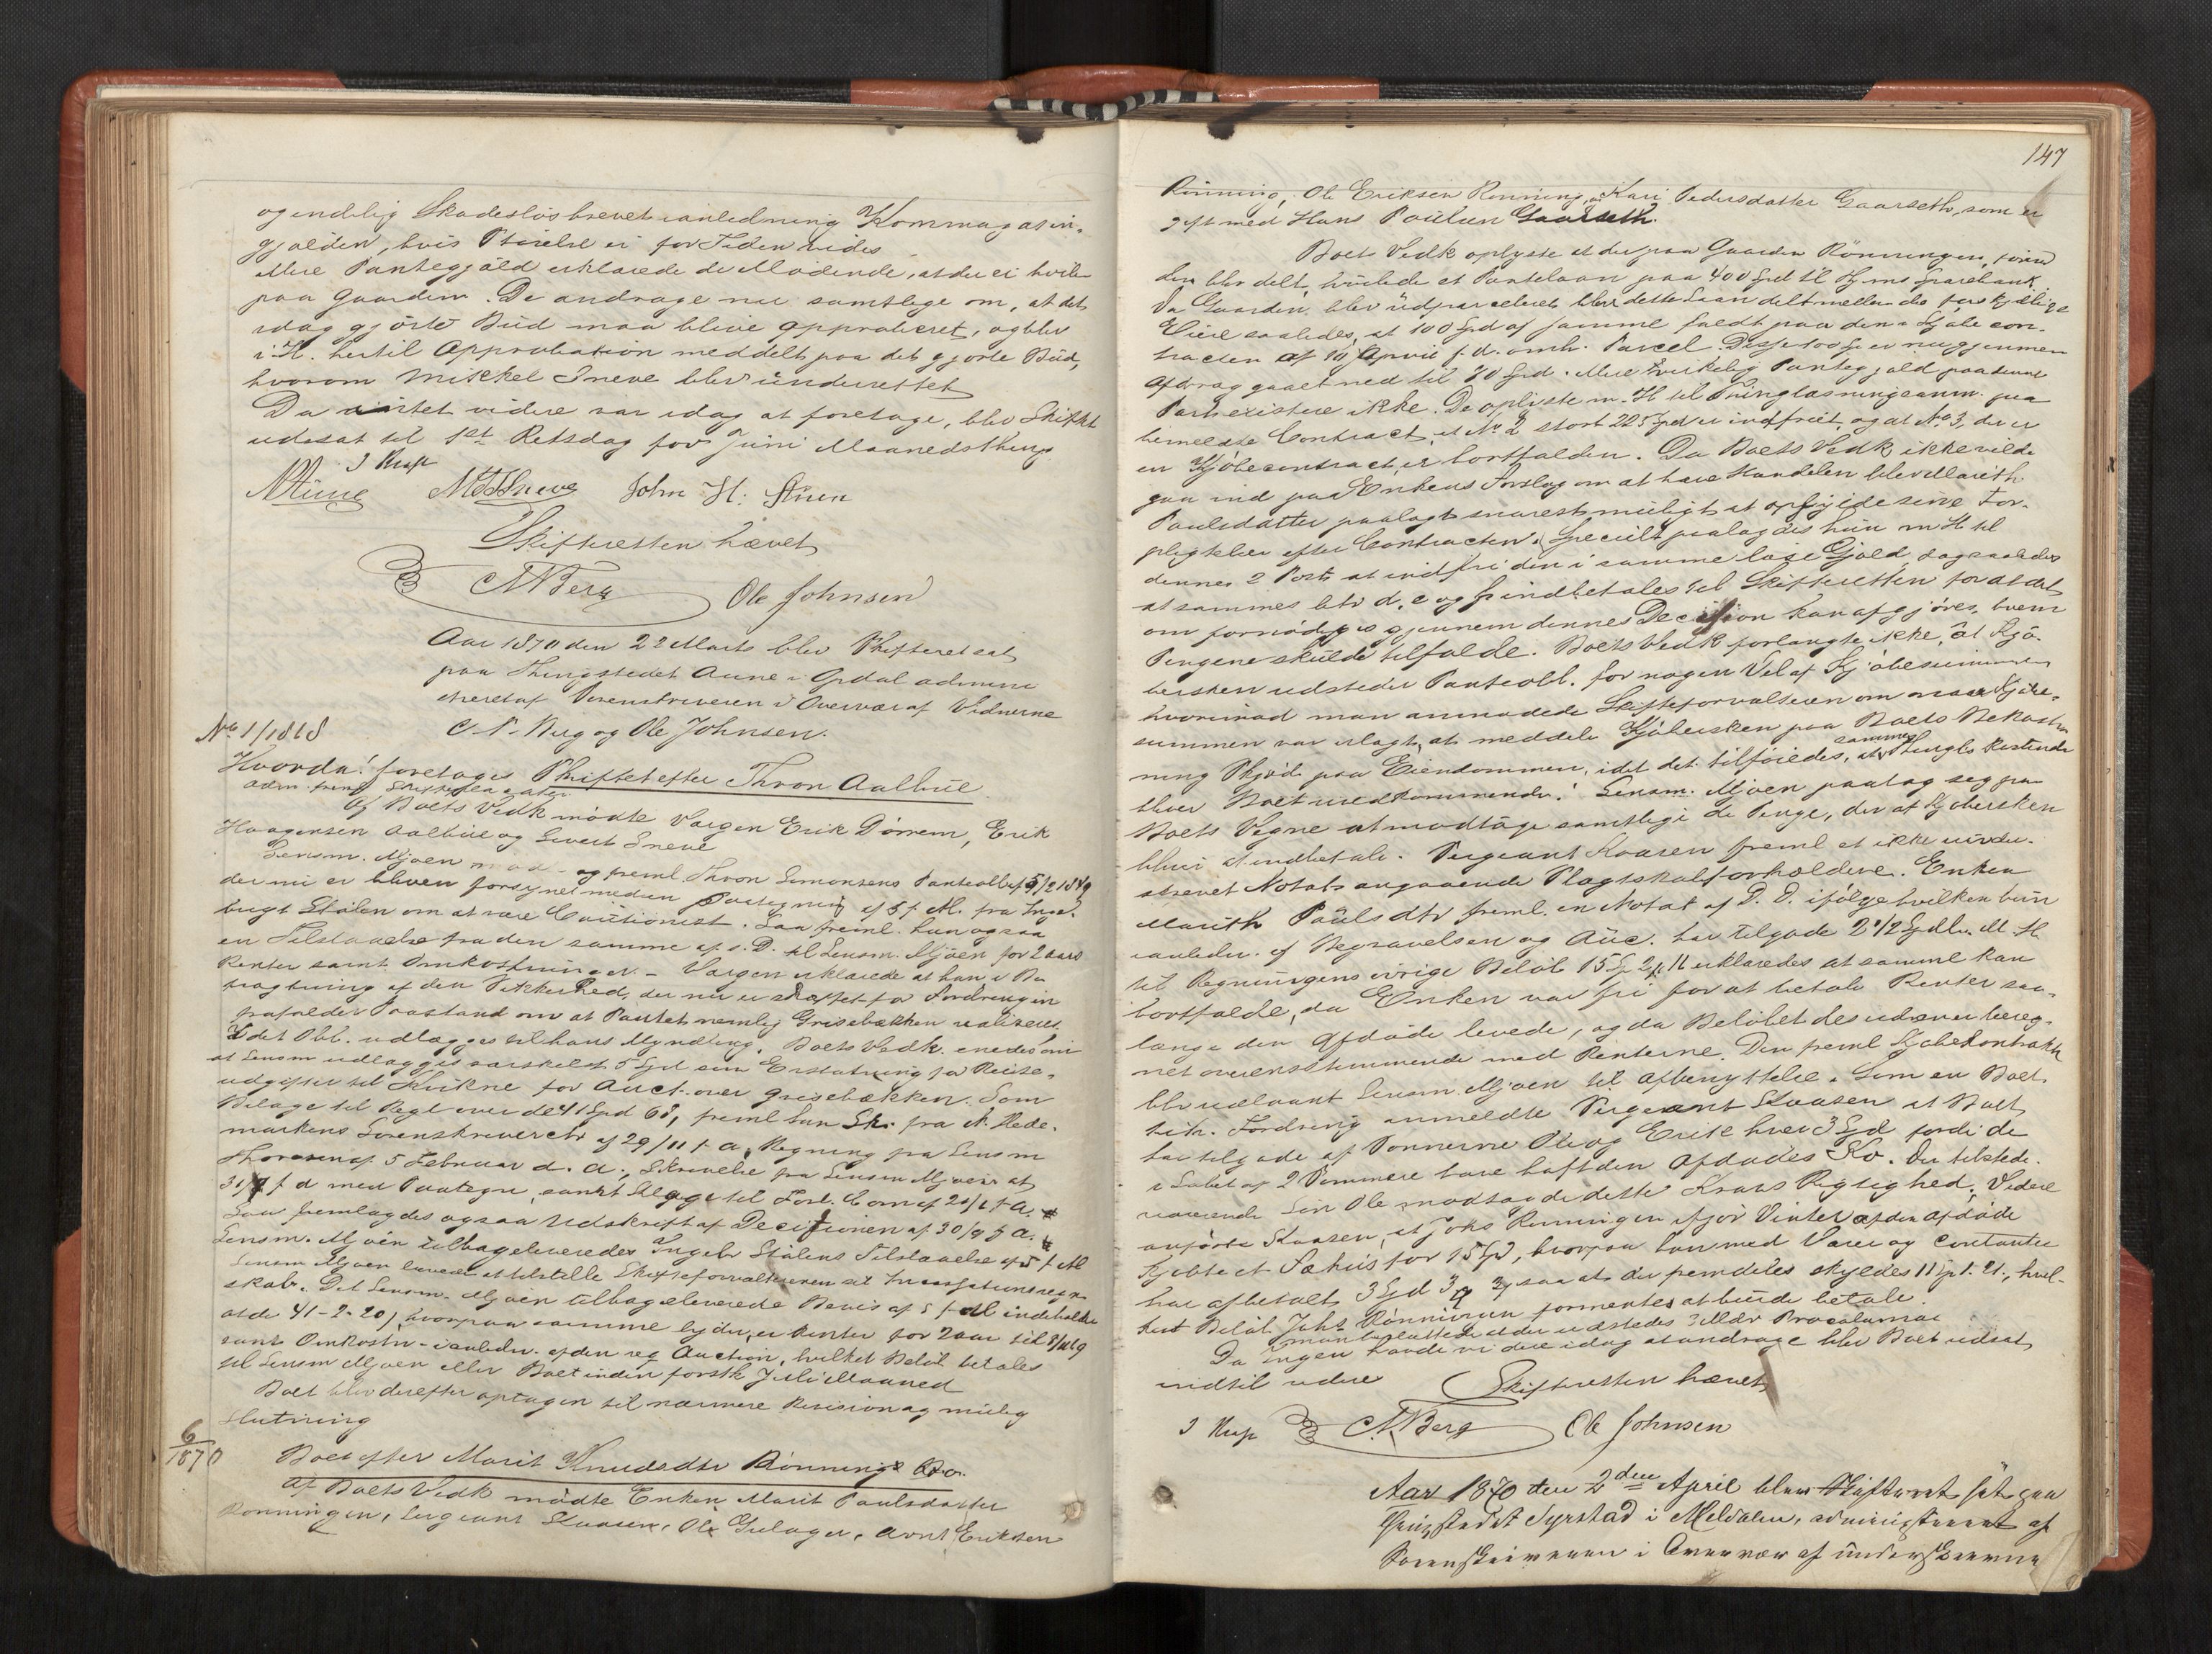 og endelig Skadesløsbrevet i anledning Kornmagasin-
gjælden, hvis Størrelse ei for Tiden vides
Mere Pantegjæld erklærede de Mødende, at der ei hviler
paa Gaarden. De androge nu samtlige om, at det
idag gjorte Bud maa blive approberet, og blev
i H. hertil Approbation meddelt paa det gjorte Bud,
hvorom Mikkel Sneve blev underrettet
Da intet videre var idag at foretage, blev Skiftet
udesat til 1st Retsdag for Juni Maanedsthing.
John H. Stuen
Skifteretten hævet
A Berg Ole Johnsen
Aar 1870 den 22 Marts blev Skifteret sat
paa Thingstedet Aune i Opdal admini
streret af Sorenskriveren i Overvær af Vidnerne
C. P. Berg og Ole Johnsen.
No 1/1868
Hvorda! foretages Skiftet efter Thron Aalbue
Af Boets Vedk mødte Værgen Erik Dørrem, Erik
Haagensen Aalbue og Sivert Sneve
Lensm. Mjøen og freml. Thron Simonsens Panteobl af 5/2 1849
der nu er bleven forsynet med en Paategning af 5 f. M. fra Inge-
brigt Stølen om at være Cautionist. Saa freml. han ogsaa
en Tilstaaelse fra den samme af s. D. til Lensm. Mjøen for 2 aars
Renter samt Omkostninger. – Værgen erklærede at han i Be
tragtning af den Sikkerhed, der nu er skaffet for Fordringen
frafalder Paastand om at Pantet nemlig Grisebækken realiseres
det Obl. udlægges til hans Myndling. Boets Vedk. enedes om
at Lensm udlægges særskilt 5 Spd som Erstatning for Reise-
udgifter til Kvikne for Auct. over Grisebækken. Som
Bilage til Regl over de 41 Spd 68, freml han Skr. fra N. Hede-
markens Sorenskriverctr af 29/11 f. A. Regning fra Lensm
Thoresen af 5 Februar d. A., Skrivelse fra Lensm Mjøen af
f d med Paategn, samt Bilage til Forl. Com af f. A.
Saa fremlagdes ogsaa Udskrift af Decisionen af 30/9 f A.
Lensm. Mjøen tilbageleveredes Ingebr Stølens Tilstaaelse af 5 f. M
Lensm Mjøen lovede at tilstille Skifteforvalteren sit
skab. Det Lensm. Mjøen tilbageleverede Bevis af 5 f. M indeholder
at de 41-2-20, hvorpaa samme lyder, er Renter for 2 aar til
samt Omkostn. i anledn. af den Auction, hvilket Beløb betales
til Lensm Mjøen eller Boet inden førstk Juli Maaned
Boet blev derefter optagen til nærmere Revision og mulig
Slutning
6/1870
Boet efter Marit Knudsdtr Rønning
Af Boets Vedk mødte Enken Marit Paulsdatter
Rønningen, Sergeant Skaasen, Ole Gulager, Arnt Eriksen
147
Rønning, Ole Eriksen Rønning, Kari Pedersdatter Gaarseth, som er
gift med Hans Paulsen Gaarseth.
Boets Vedk oplyste at der paa Gaarden Rønningen, førend
den blev delt, hvilede et Pantelaan paa 400 Spd til Hjems Sparebank.
Da Gaarden blev udparceleret blev dette Laan delt mellem de forskjellige
Eiere saaledes, at 100 Spd af samme faldt paa den i Kjøbecon-
tracten af 10 April f. d. omh. Parcel. Disse 100 Sp er nu gjennem
Afdrag gaaet ned til 70 Spd. Mere virkelig Pantegjæld paa denne
Part existere ikke. De oplyste m. H. til Thinglæsningsanm. paa
bemeldte Contract, at No 2 stort 225 Spd er indfriet, og at No 3, der er
en Kjøbecontract, er bortfalden. Da Boets Vedk ikke vilde
gaa ind paa Enkens Forslag om at hæve Handelen blev Marith
Paulsdatter paalagt snarest muligt at opfylde sine For-
pligtelser efter Contracten. Specielt paalagdes hun m H til
dennes 2 Post, at indfri den i samme løse Gjæld, og saaledes
at sammes litr d, e og f indbetales til Skifteretten for at det
om fornødiges gjennem dennes Decision kan afgjøres, hvem
Pengene skulde tilfalde. Boets Vedk forlangte ikke, at Kjø-
bersken udsteder Panteobl. for nogen Del af Kjøbesummen
hvorimod man anmodede Skifteforvalteren om naar Kjøbe-
summen var erlagt, at meddele Kjøbersken paa Boets Bekost-
ning Skjøde paa Eiendommen, idet det tilføiedes, at sammes
bliver Boet uvedkommende. Lensm. Mjøen paatog seg paa
Boets Vegne at modtage samtlige de Penge, der af Kjøbersken
bliver at indbetale. Sergeant Skaasen freml et ikke under-
skrevet Notat angaaende Slagtskabsforholdene. Enken
Marith Paulsdtr freml. en Notat af D. D. ifølge hvilken hun
i anledn. af Begravelsen og Auc. har tilgode 2 1/2 Spdlr. M. H.
til Regningens øvrige Beløb 15 Sp erklæredes at samme kan
bortfalde, da Enken var fri for at betale Renter saa-
længe den Afdøde levede, og da Beløbet desuden er bereg-
net overensstemmende med Renterne. Den freml Kjøbekontrakt
blev udlaant Lensm. Mjøen til Afbenyttelse. Som en Boet
tilh. Fordring anmeldte Sergeant Skaasen at Boet
har tilgode af Sønnerne Ole og Erik hver 3 Spd fordi de
i Løbet af 2 Sommere have havt den Afdødes Ko. Den tilstede-
værende Søn Ole modsagde dette Kravs Rigtighed. Videre
anførte Skaasen, at Johs Rønningen ifjor Vinter af den Afdøde
kjøbte et Fæhus for 15 Spd, hvorpaa han med Varer og Contanter
har afbetalt 3 Spd saa at der fremdeles skyldes 11, hvil-
ket Beløb Johs Rønningen formentes at burde betale.
man besluttede at der udstedes Proclamas
Da Ingen havde videre idag at andrage blev Boet udsat
indtil videre Skifteretten hævet
A Berg Ole Johnsen
Aar 1870 den 2den April blev Skifteret sat paa
Thingstedet Syrstad i Meldalen, administreret af
Sorenskriveren i Overvær af underskrevne